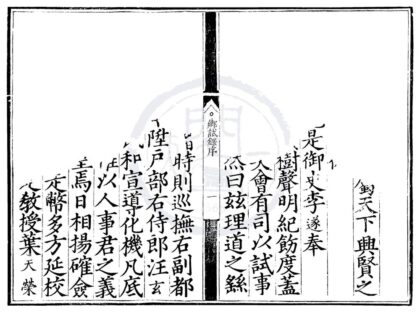 天下興賢之
是御史李遂奉
樹聲明紀飭度蓋
會有司以試事
曰玆理道之繇
鄉試錄序
一
時則巡撫右副都
陞戶部右侍郎汪玄
和宣道化機凡底
以人事君之義
焉日相揚確僉
幣多方延校
教授葉天榮